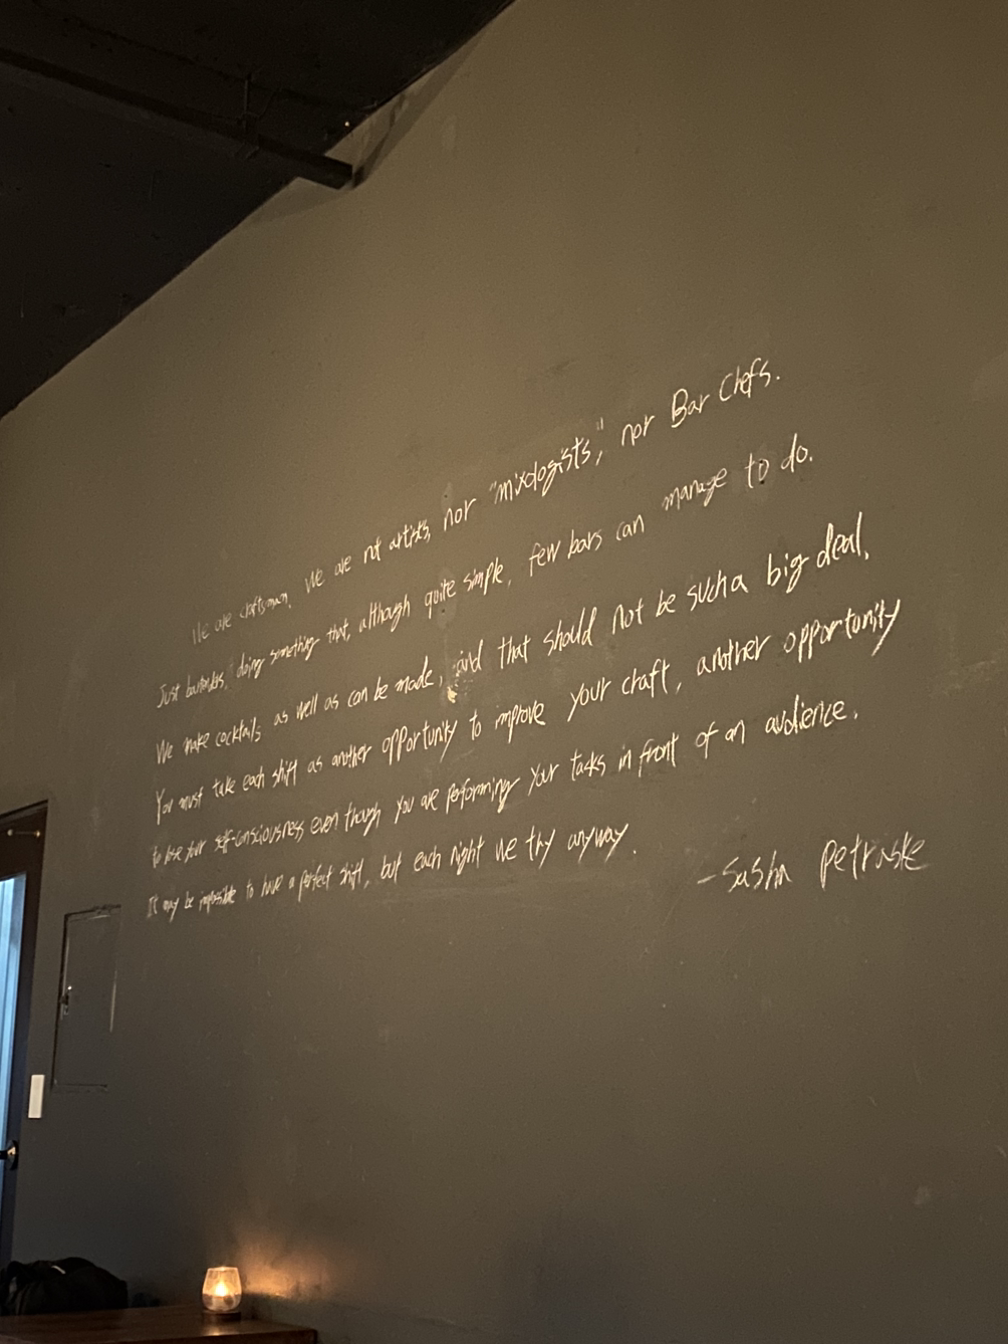 We are craftsman. We are not artists, nor "mixologists," nor Bar Chefs.
Just bartenders, doing something that, although quite simple, few bars can manage to do.
We make cocktails as well as can be made, and that should not be such a big deal.
You must take each shift as another opportunity to improve your craft, another opportunity
to lose your self-consciousness even though you are performing your tasks in front of an audience.
It may be impossible to have a perfect shift, but each night we try anyway.
-Sasha Petraske